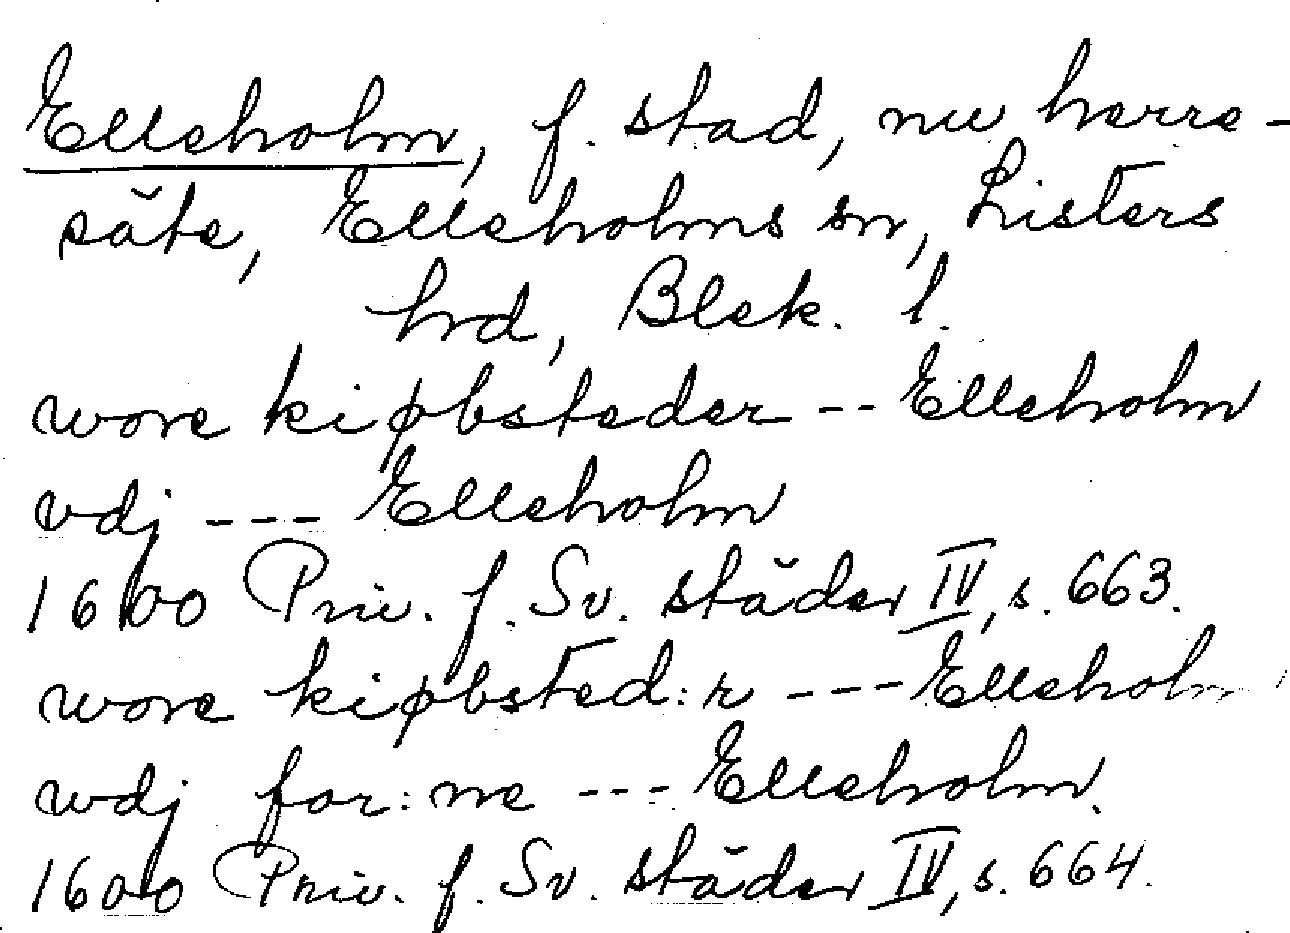 Elleholm, f. stad, nu herre-
säte, Elleholms sn, Listers
hrd, Blek. l.
wore kiøbsteder -- Elleholm
vdj --- Elleholm
1600 Priv. f. Sv. städer IV, s. 663.
wore kiøbsted:r --- Elleholm
wdj for:ne --- Elleholm.
1600 Priv. f. Sv. städer IV, s. 664.